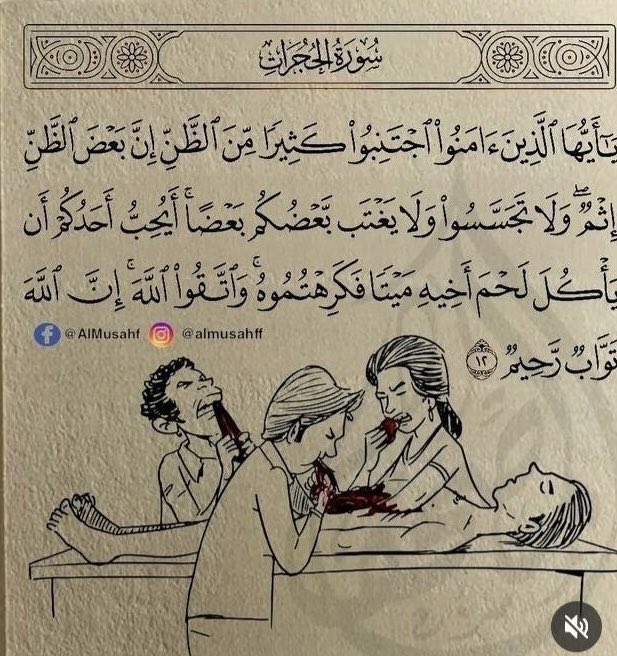 سُورَةُ الحُجُرَاتِ
يَٰٓأَيُّهَا ٱلَّذِينَ ءَامَنُوا۟ ٱجْتَنِبُوا۟ كَثِيرًا مِّنَ ٱلظَّنِّ إِنَّ بَعْضَ ٱلظَّنِّ
إِثْمٌ ۖ وَلَا تَجَسَّسُوا۟ وَلَا يَغْتَب بَّعْضُكُم بَعْضًا ۚ أَيُحِبُّ أَحَدُكُمْ أَن
يَأْكُلَ لَحْمَ أَخِيهِ مَيْتًا فَكَرِهْتُمُوهُ ۚ وَٱتَّقُوا۟ ٱللَّهَ ۚ إِنَّ ٱللَّهَ
@AlMusahf @almusahff
تَوَّابٌ رَّحِيمٌ ١٢